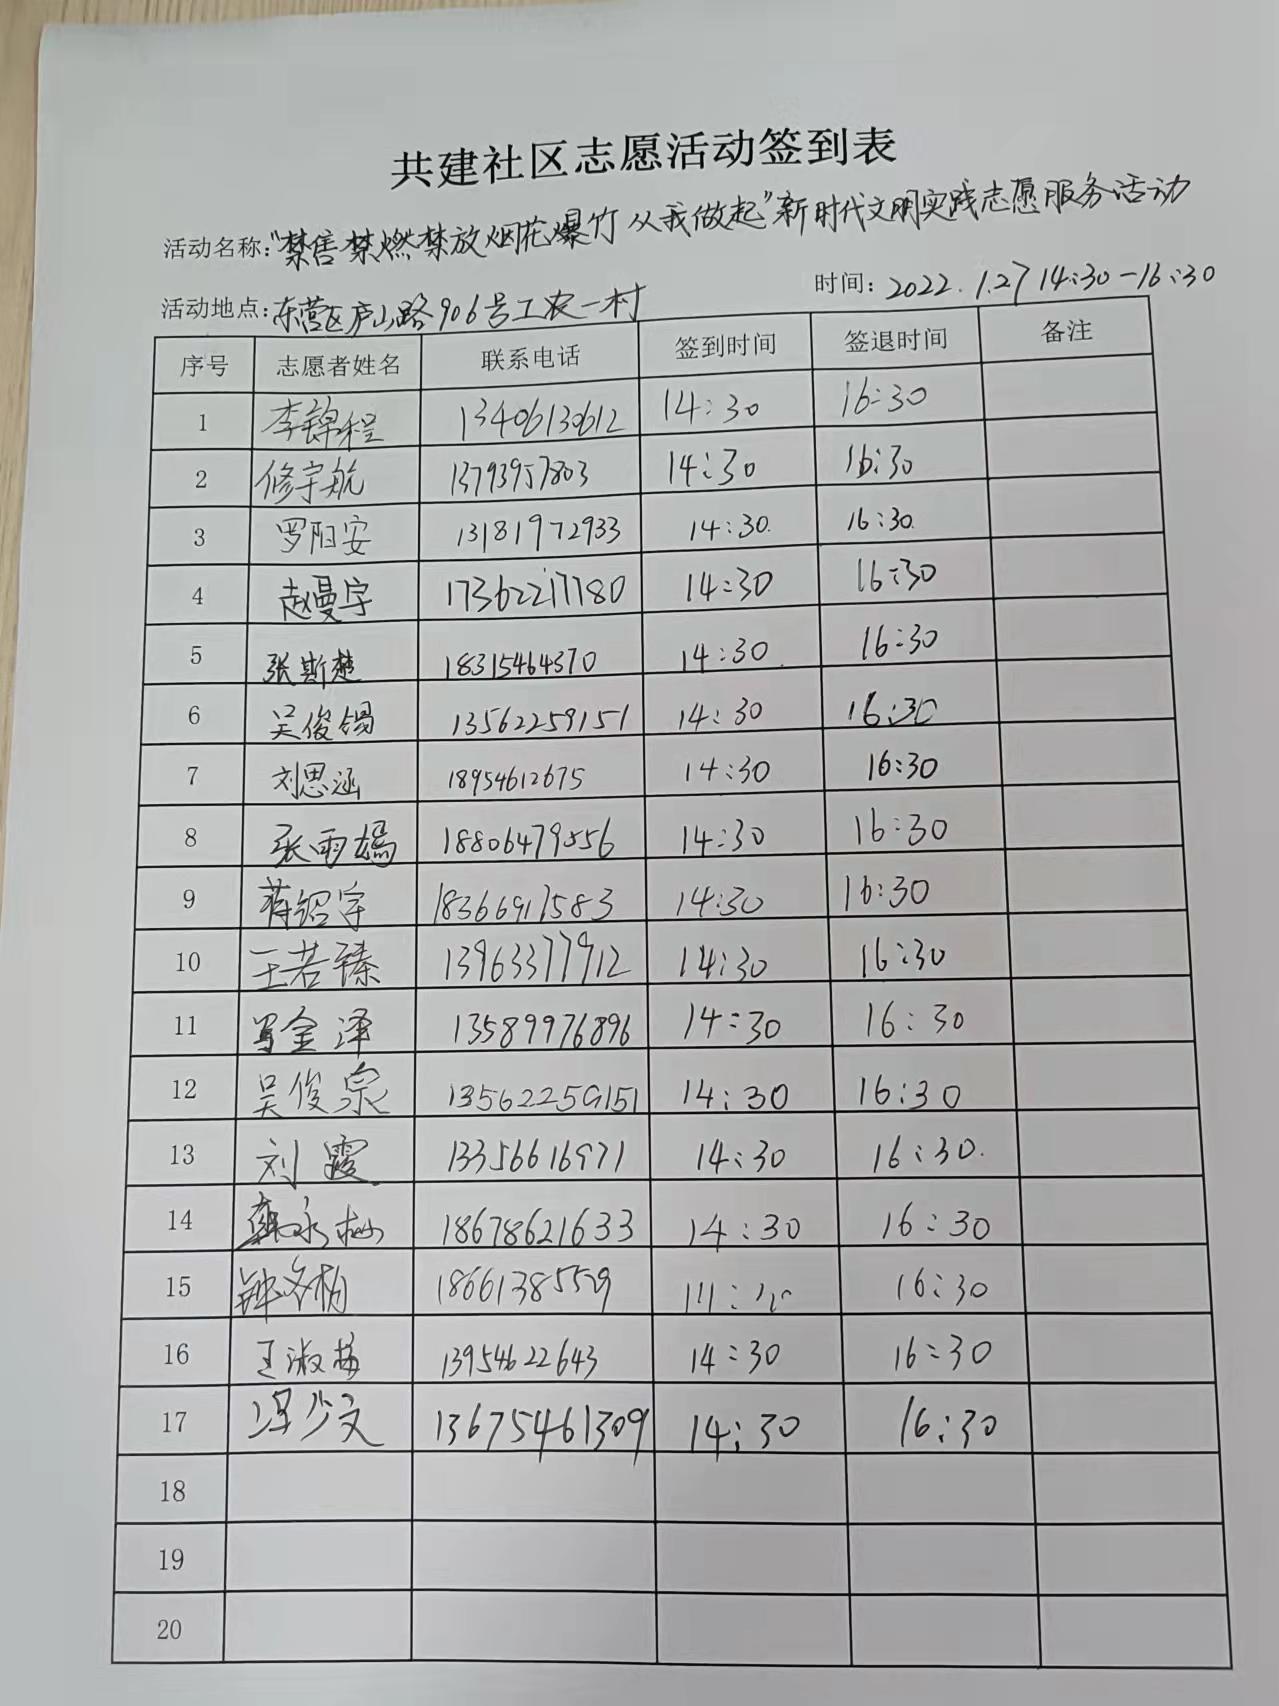 共建社区志愿活动签到表
活动名称："禁售禁燃禁放烟花爆竹 从我做起"新时代文明实践志愿服务活动
活动地点：东营区庐山路906号工农一村 时间：2022.1.27 14:30-16:30
序号 志愿者姓名 联系电话 签到时间 签退时间 备注
1 李锦程 13406130612 14:30 16:30
2 修宇航 13793957803 14:30 16:30
3 罗阳安 13181972933 14:30 16:30
4 赵曼宇 17362217780 14:30 16:30
5 张斯楚 18315464370 14:30 16:30
6 吴俊锡 13562259151 14:30 16:30
7 刘思涵 18954612675 14:30 16:30
8 张雨嫣 18806479556 14:30 16:30
9 蒋绍宇 18366917583 14:30 16:30
10 王若臻 13963377912 14:30 16:30
11 金泽 13589976896 14:30 16:30
12 吴俊宗 13562259151 14:30 16:30
13 刘霞 13356616971 14:30 16:30
14 永 18678621633 14:30 16:30
15 钟 18661385559 16:30
16 王淑梅 13954622643 14:30 16:30
17 少文 13675461309 14:30 16:30
18
19
20